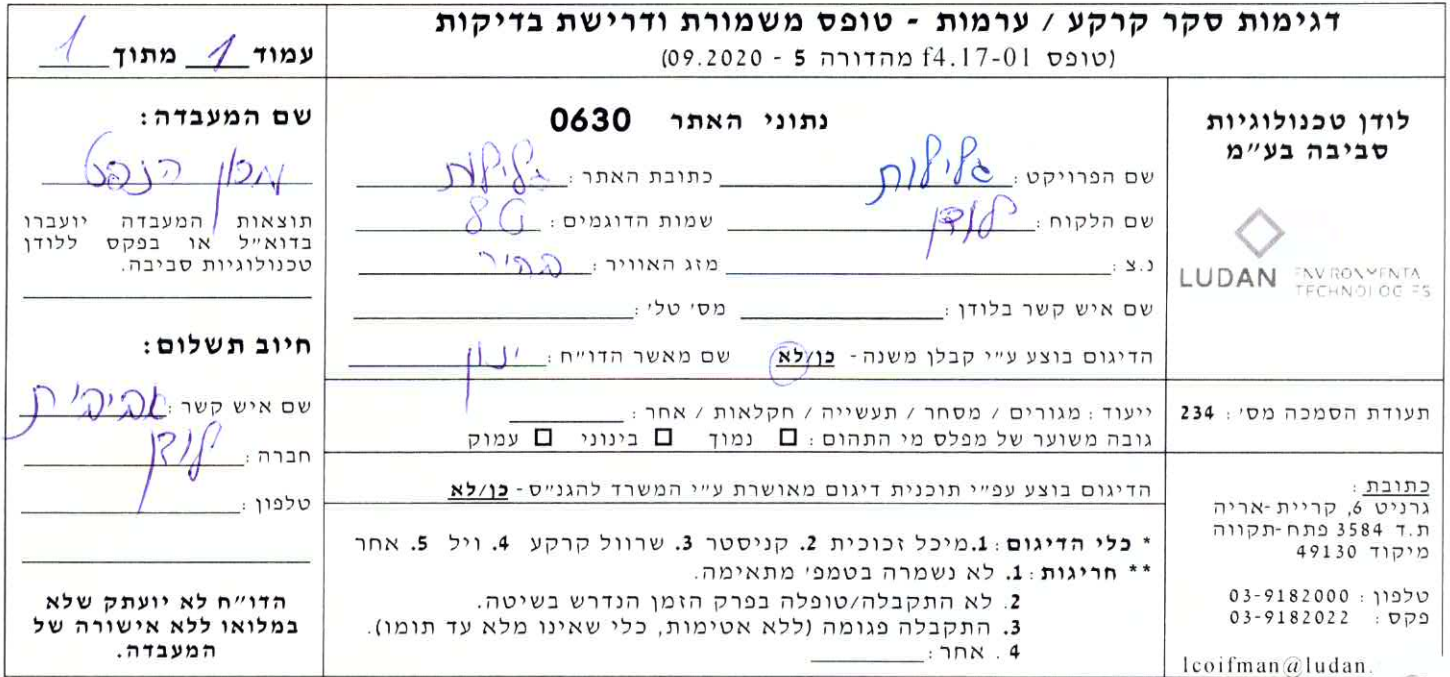 דגימות סקר קרקע / ערמות - טופס משמורת ודרישת בדיקות
(טופס f4.17-01 מהדורה 5 - 09.2020)
עמוד 1 מתוך 1
לודן טכנולוגיות
סביבה בע״מ
LUDAN ENVIRONMENTA
TECHNOLOGIES
תעודת הסמכה מס׳ : 234
כתובת :
גרניט 6, קריית-אריה
ת.ד 3584 פתח-תקווה
מיקוד 49130
טלפון : 03-9182000
פקס : 03-9182022
lcoifman@ludan.
נתוני האתר 0630
שם הפרויקט : גלילות כתובת האתר : גלילות
שם הלקוח : לודן שמות הדוגמים :
נ.צ : מזג האוויר : בהיר
שם איש קשר בלודן : מס׳ טל׳ :
הדיגום בוצע ע״י קבלן משנה- כן/לא שם מאשר הדו״ח : ינון
ייעוד : מגורים / מסחר / תעשייה / חקלאות / אחר :
גובה משוער של מפלס מי התהום : □ נמוך □ בינוני □ עמוק
הדיגום בוצע עפ״י תוכנית דיגום מאושרת ע״י המשרד להגנ״ס- כן/לא
* כלי הדיגום : 1.מיכל זכוכית 2. קניסטר 3. שרוול קרקע 4. ויל 5. אחר
** חריגות : 1. לא נשמרה בטמפ׳ מתאימה.
2. לא התקבלה/טופלה בפרק הזמן הנדרש בשיטה.
3. התקבלה פגומה (ללא אטימות, כלי שאינו מלא עד תומו).
4 . אחר :
שם המעבדה :
מכון הנפט
תוצאות המעבדה יועברו
בדוא״ל או בפקס ללודן
טכנולוגיות סביבה.
חיוב תשלום :
שם איש קשר : אביבית
חברה : לודן
טלפון :
הדו״ח לא יועתק שלא
במלואו ללא אישורה של
המעבדה.